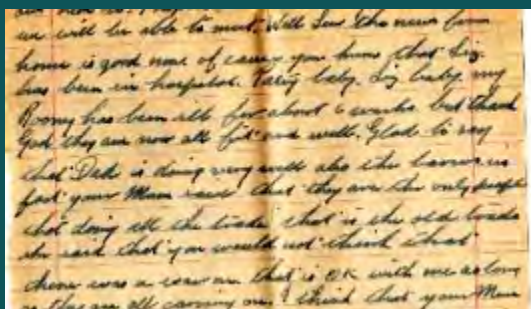 we will be able to meet. Well the news from
home is good now of course you know that Liz
has been in hospital. baby, Liz baby my
has been ill for about 6 weeks but thank
God they are now all fit and well. Glad to say
that Dad is doing very well also the
fact your Mum said that they are the only people
that doing all the trade that is the old trade
she said that you would not think that
there was a war on that is OK with me as long
as they are all carrying on I think that your Mum